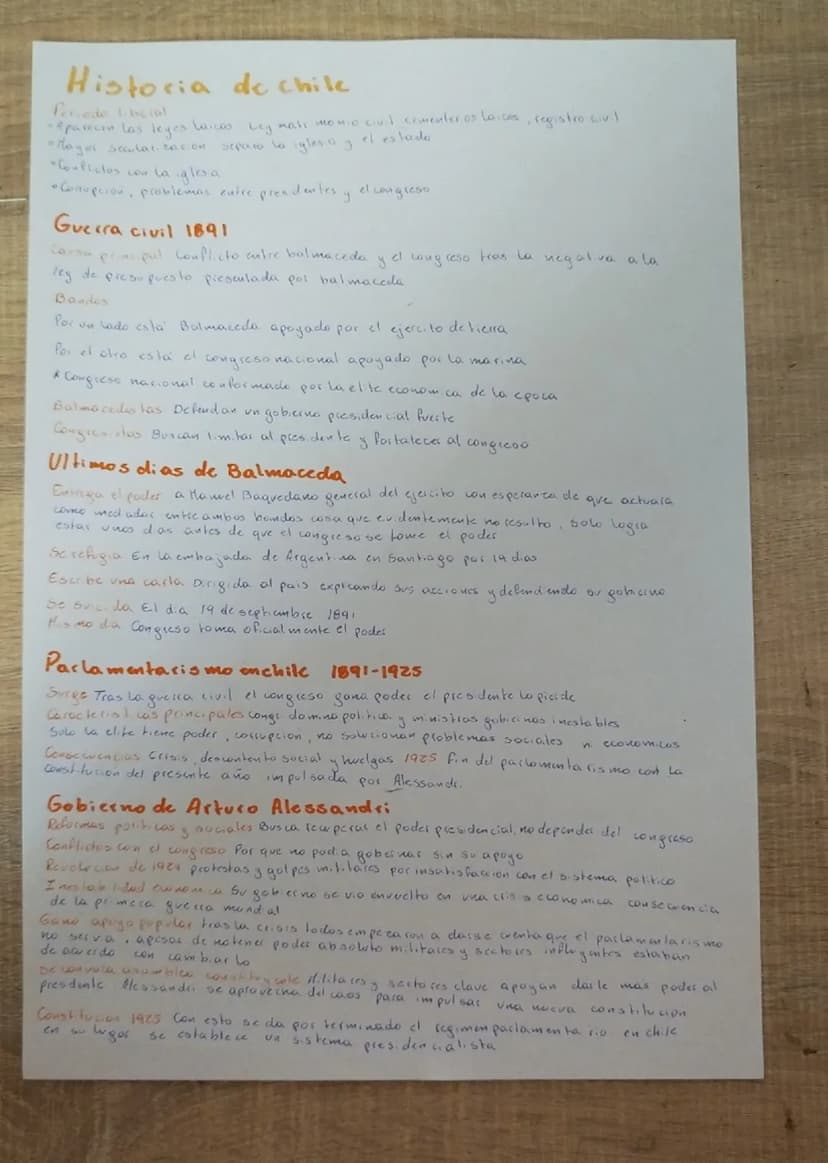 Historia de chile
Periodo liberal
• Aparecen las leyes laicas Ley matrimonio civil cementerios laicos, registro civil
• Mayor secularizacion separo la iglesia y el estado
• Conflictos con la iglesia
• Corrupcion, problemas entre presidentes y el congreso
Guerra civil 1891
Causa principal Conflicto entre balmaceda y el congreso tras la negativa a la
ley de presupuesto presentada por balmaceda
Bandos
Por un lado está Balmaceda apoyado por el ejercito de tierra
Por el otro está el congreso nacional apoyado por la marina
* Congreso nacional conformado por la elite economica de la epoca
Balmacedistas Defendan un gobierno presidencial fuerte
Congresistas Buscan limitar al presidente y fortalecer al congreso
Ultimos dias de Balmaceda
Entrega el poder a Manuel Baquedano general del ejercito con esperanza de que actuara
como mediador entre ambos bandos cosa que evidentemente no resulto, solo logra
estar unos dias antes de que el congreso se tome el poder
Se refugia En la embajada de Argentina en Santiago por 19 dias
Escribe una carta Dirigida al pais explicando sus acciones y defendiendo su gobierno
Se suicida El dia 19 de septiembre 1891
Mismo dia Congreso toma oficialmente el poder
Parlamentarismo en chile 1891-1925
Surge Tras la guerra civil el congreso gana poder el presidente lo pierde
Caracteristicas principales congr domino politico y ministros gobiernos inestables
Solo la elite tiene poder, corrupcion, no solucionan problemas sociales ni economicos
Consecuencias Crisis, descontento social y huelgas 1925 fin del parlamentarismo con la
constitucion del presente año impulsada por Alessandri.
Gobierno de Arturo Alessandri
Reformas politicas y sociales Busca recuperar el poder presidencial, no depender del congreso
Conflictos con el congreso Por que no podia gobernar sin su apoyo
Revolucion de 1924 protestas y golpes militares por insatisfaccion con el sistema politico
Inestabilidad economica Su gobierno se vio envuelto en una crisis economica consecuencia
de la primera guerra mundial
Gano apoyo popular tras la crisis todos empezaron a darse cuenta que el parlamentarismo
no serva, apesar de no tener poder absoluto militares y sectores influyentes estaban
de acuerdo con cambiarlo
Se convoca asamblea constituyente Militares y sectores clave apoyan darle mas poder al
presidente Alessandri se aprovecha del caos para impulsar una nueva constitucion
Constitucion 1925 Con esto se da por terminado el regimen parlamentario en chile
en su lugar se establece un sistema presidencialista